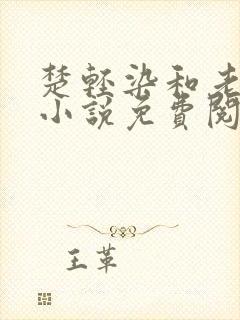 楚轻染和老
小说免費閱
王革